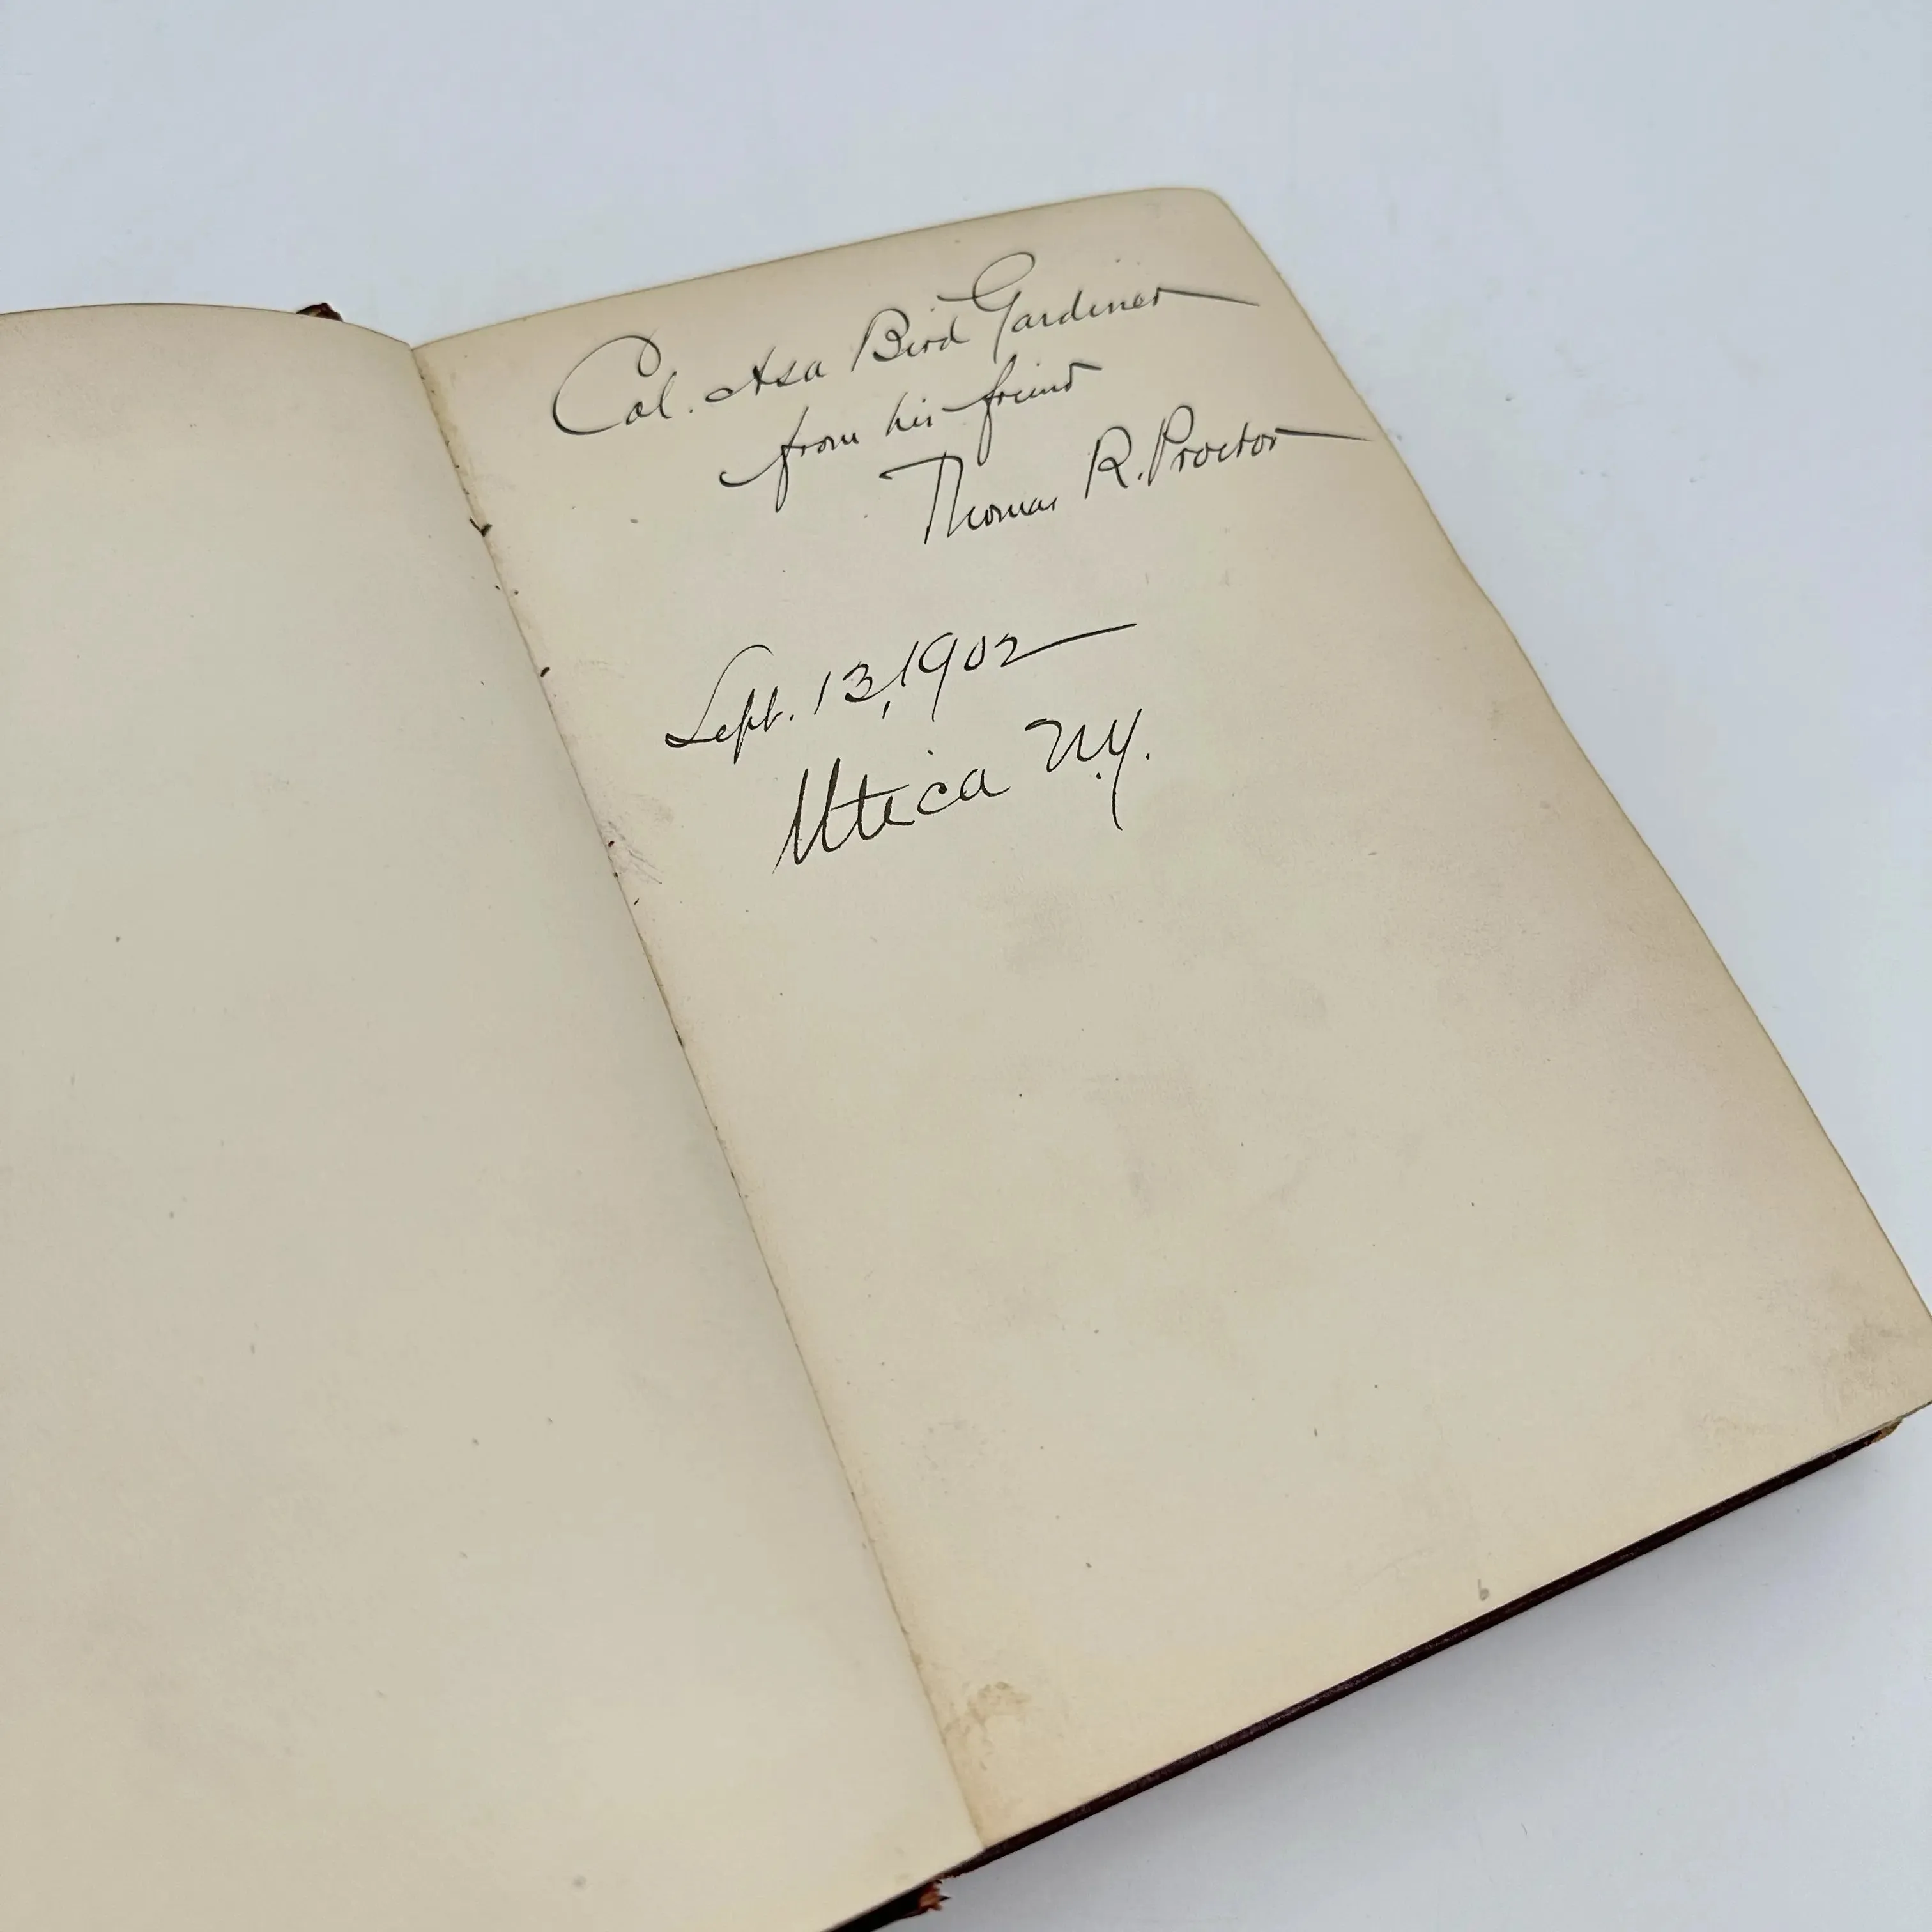 Col. Asa Bird Gardiner
from his friend
Thomas R. Proctor
Sept. 13, 1902
Utica N.Y.
6